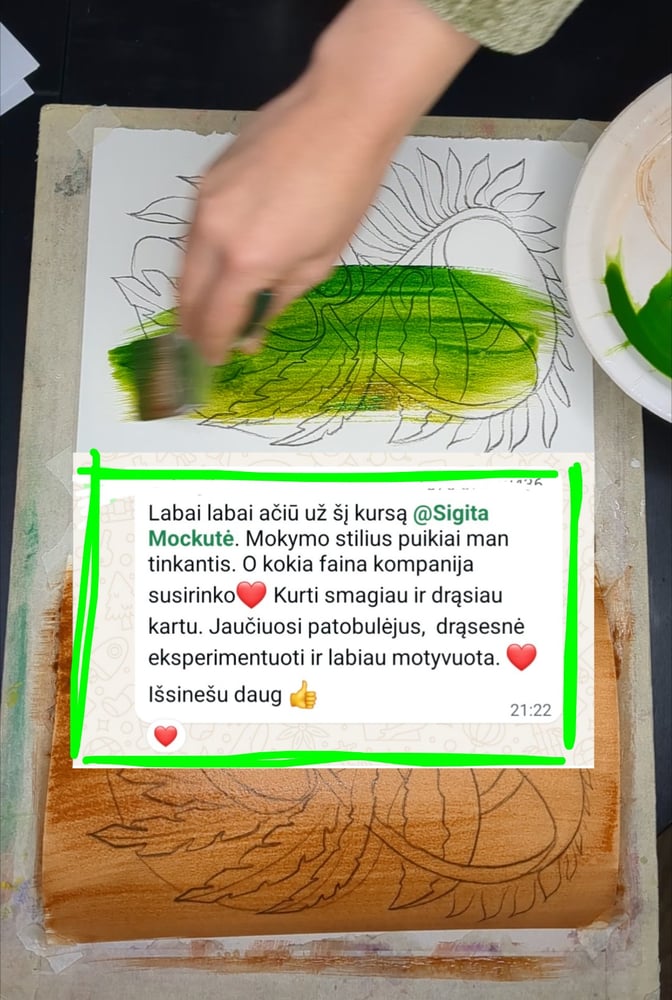 Labai labai ačiū už šį kursą @Sigita
Mockutė. Mokymo stilius puikiai man
tinkantis. O kokia faina kompanija
susirinko❤️ Kurti smagiau ir drąsiau
kartu. Jaučiuosi patobulėjus, drąsesnė
eksperimentuoti ir labiau motyvuota. ❤️
Išsinešu daug 👍
21:22
❤️